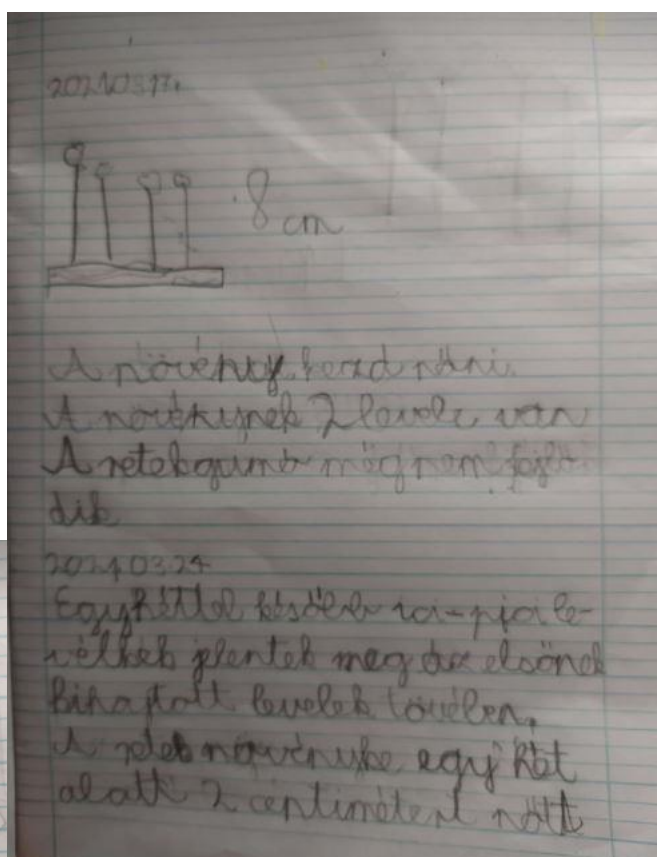 2021.03.17.
8 cm
A növény kezd nőni.
A növénynek 2 levele van
A retekgumó még nem fejlő
dik
2021.03.24
Egyhéttel később
jelentek meg az elsőnek
kihajtott levelek tövében.
A retek növényke egy hét
alatt 2 centimétert nőtt